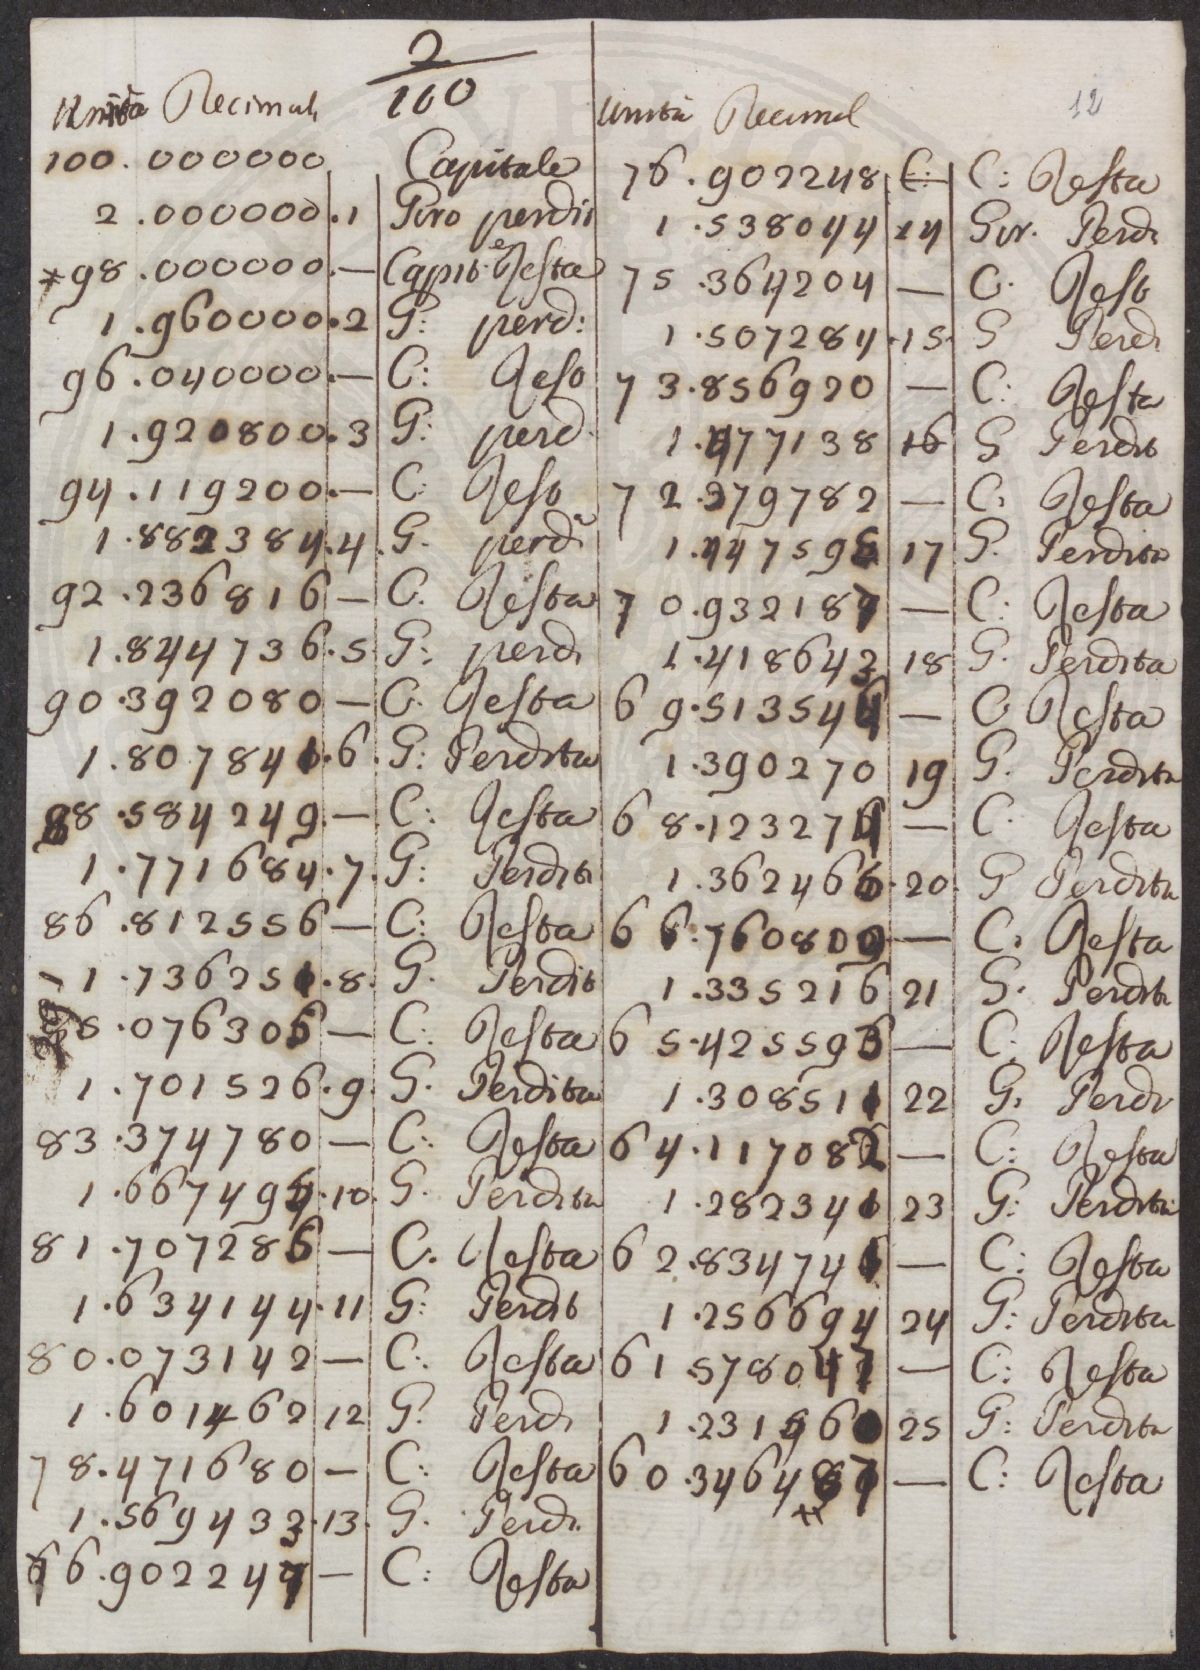 2
100
Unità Decimali
100.000000 Capitale
2.000000.1 Giro perdi
98.000000.— Capit. Resta
1.960000.2 G: perd:
96.040000.— C: Reso
1.920800.3 G: perd.
94.119200.— C: Reso
1.882384.4. G. perd
92.236816 — C. Resta
1.844736.5 G: perdi
90.392080 — C. Resta
1.807841.6. G: Perdita
88.584249.— C: Resta
1.771684.7. G: Perdit
86.812556 — C: Resta
1.736251.8. G. Perdit
85.076306 — C: Resta
1.701526.9. G. Perdita
83.374780 — C: Resta
1.667494.10. G. Perdita
81.707286 — C. Resta
1.634144.11 G: Perdit
80.073142 — C: Resta
1.601462 12 G: Perdi
78.471680 — C: Resta
1.569433.13. G. Perdi.
76.902247 — C: Resta
12
Unità Decimal
76.902248 C: C: Resta
1.538044 14 Gir. Perdi
75.364204 — C. Rest
1.507284.15. G Perdi
73.856920 — C: Resta
1.477138 16 G Perdit
72.379782 — C: Resta
1.447595 17 G. Perdita
70.932187 — C: Resta
1.418643 18 G. Perdita
69.513544 — C Resta
1.390270 19 G. Perdita
68.123274 — C. Resta
1.362465.20. G Perdita
66.760809 — C. Resta
1.335216 21 G. Perdita
65.425593 — C. Resta
1.308511 22 G. Perdi
64.117082 — C: Resta
1.282341 23 G: Perdita
62.834741 — C: Resta
1.256694 24 G: Perdita
61.578047 — C: Resta
1.231560 25 G: Perdita
60.346487 — C: Resta